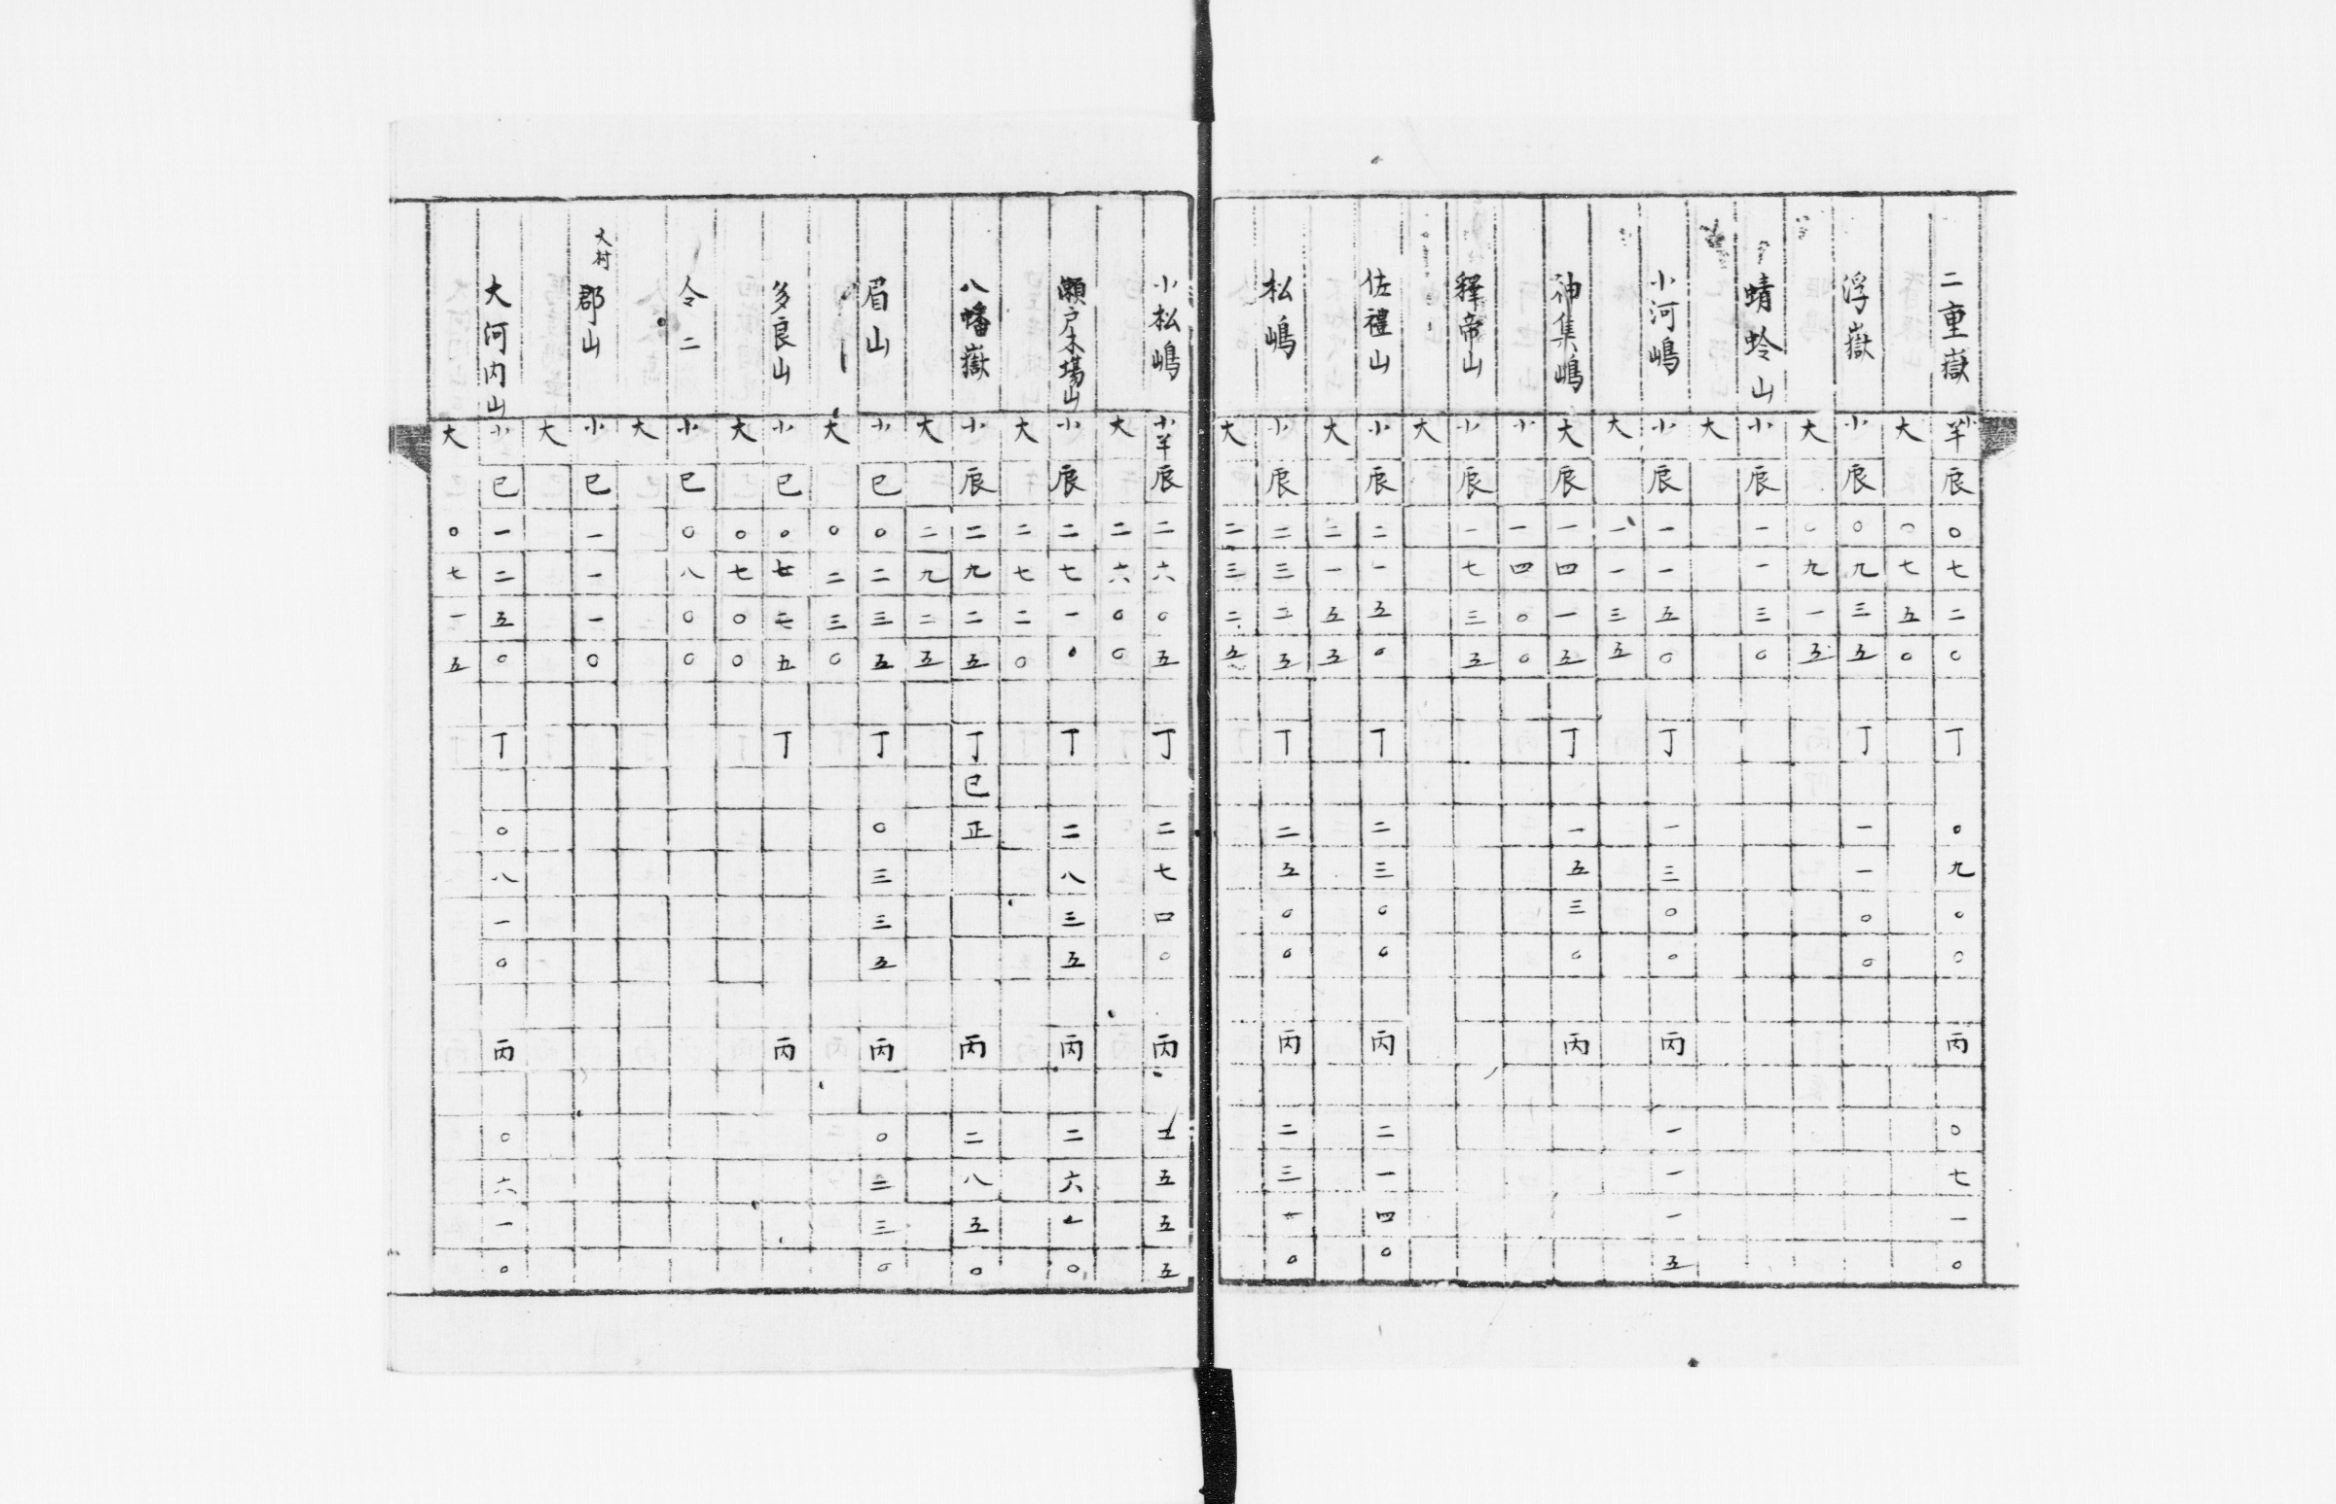 二重嶽 小半 辰 〇七二〇 丁 〇九〇〇 丙 〇七一〇
大 〇七五〇
浮嶽 小 辰 〇九三五 丁 一一〇〇
大 〇九一五
蜻蛉山 小 辰 一一三〇
大
小河嶋 小 辰 一一五〇 丁 一三〇〇 丙 一一一五
大 一一三五
神集嶋 大 辰 一四一五 丁 一五三〇 丙
小 一四〇〇
釋帝山 小 辰 一七三五
大
佐禮山 小 辰 二一五〇 丁 二三〇〇 丙 二一四〇
大 二一五五
松嶋 小 辰 二三二五 丁 二五〇〇 丙 二三一〇
大 二三二五
小松嶋 小半 辰 二六〇五 丁 二七口〇 丙 五五五
大 二六〇〇
瀬戸木場山 小 辰 二七一〇 丁 二八三五 丙 二六一〇
大 二七二〇
八幡嶽 小 辰 二九二五 丁 巳正 丙 二八五〇
大 二九二五
眉山 小 巳 〇二三五 丁 〇三三五 丙 〇二三〇
大 〇二三〇
多良山 小 巳 〇七五 丁 丙
大 〇七〇〇
令二 小 巳 〇八〇〇
大
大村 郡山 小 巳 一一一〇
大
大河内山 小 巳 一二五〇 丁 〇八一〇 丙 〇六一〇
大 〇七一五